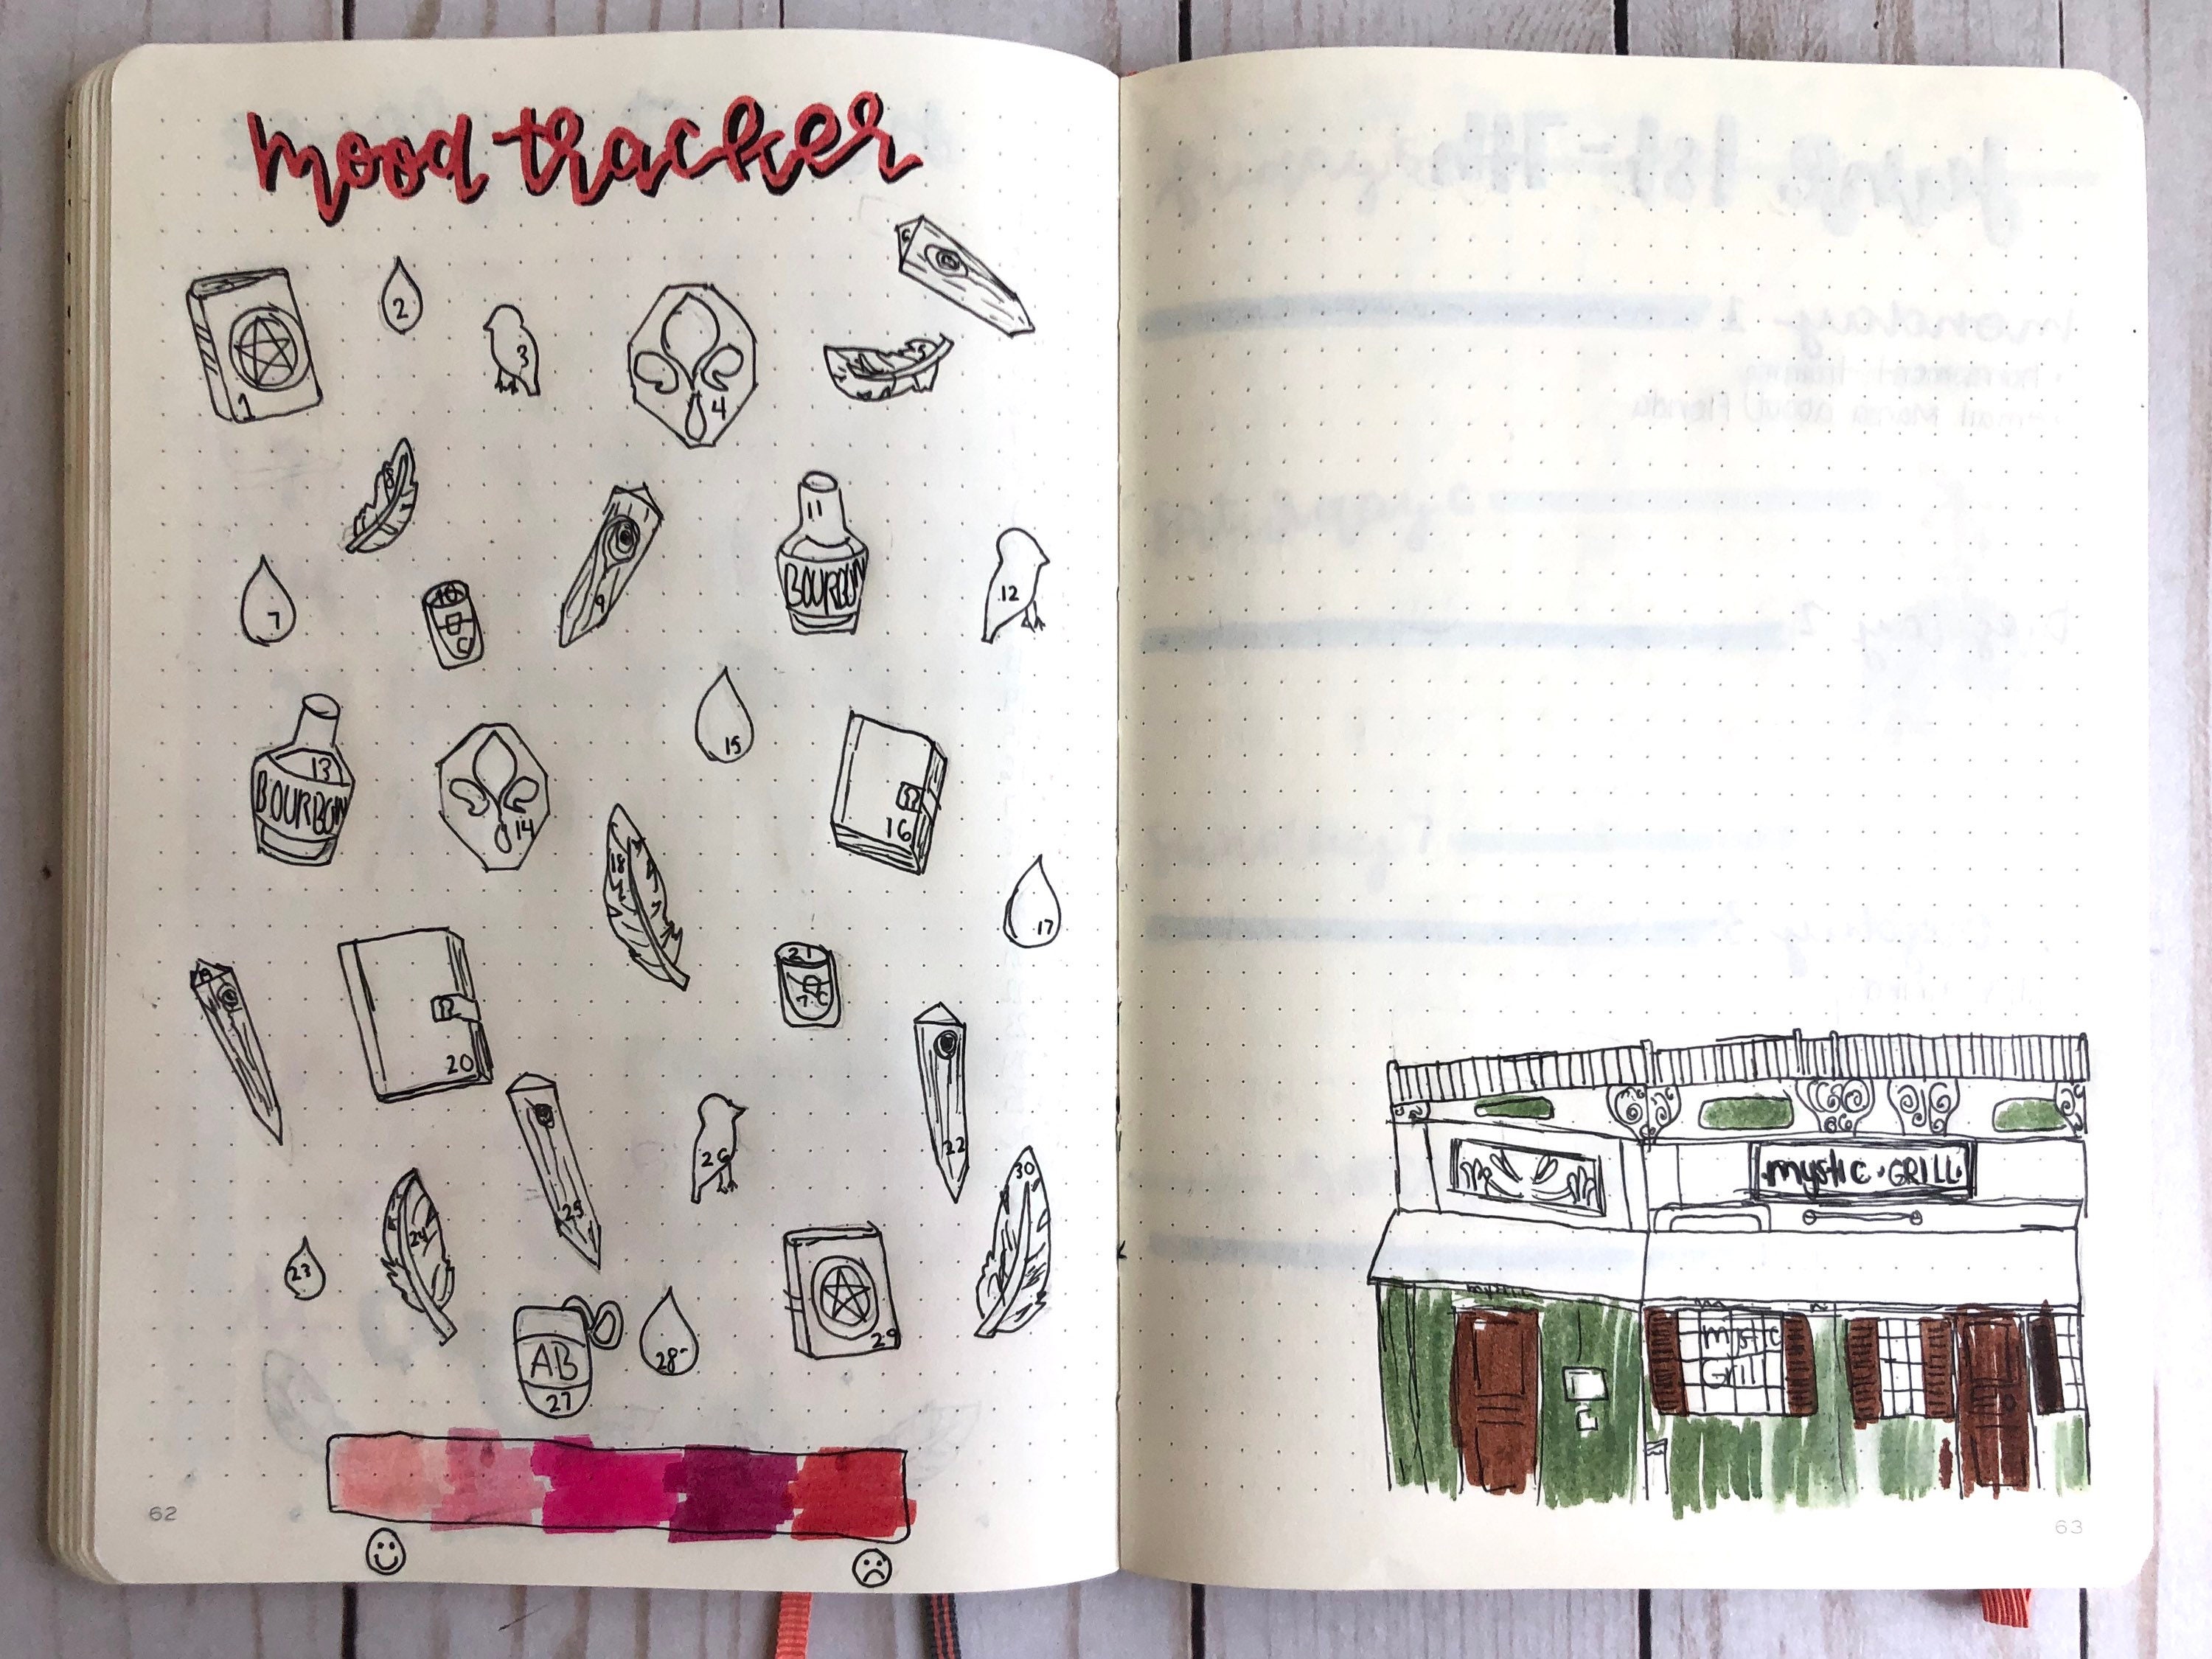 mood tracker
6
1
2
3
4
5
8
11
7
10
9
BOURBON
12
13
BOURBON
14
15
16
18
17
19
20
21
22
23
24
25
26
30
AB
27
28
29
62
mystic · GRILL
mystic
mystic
Grill
63